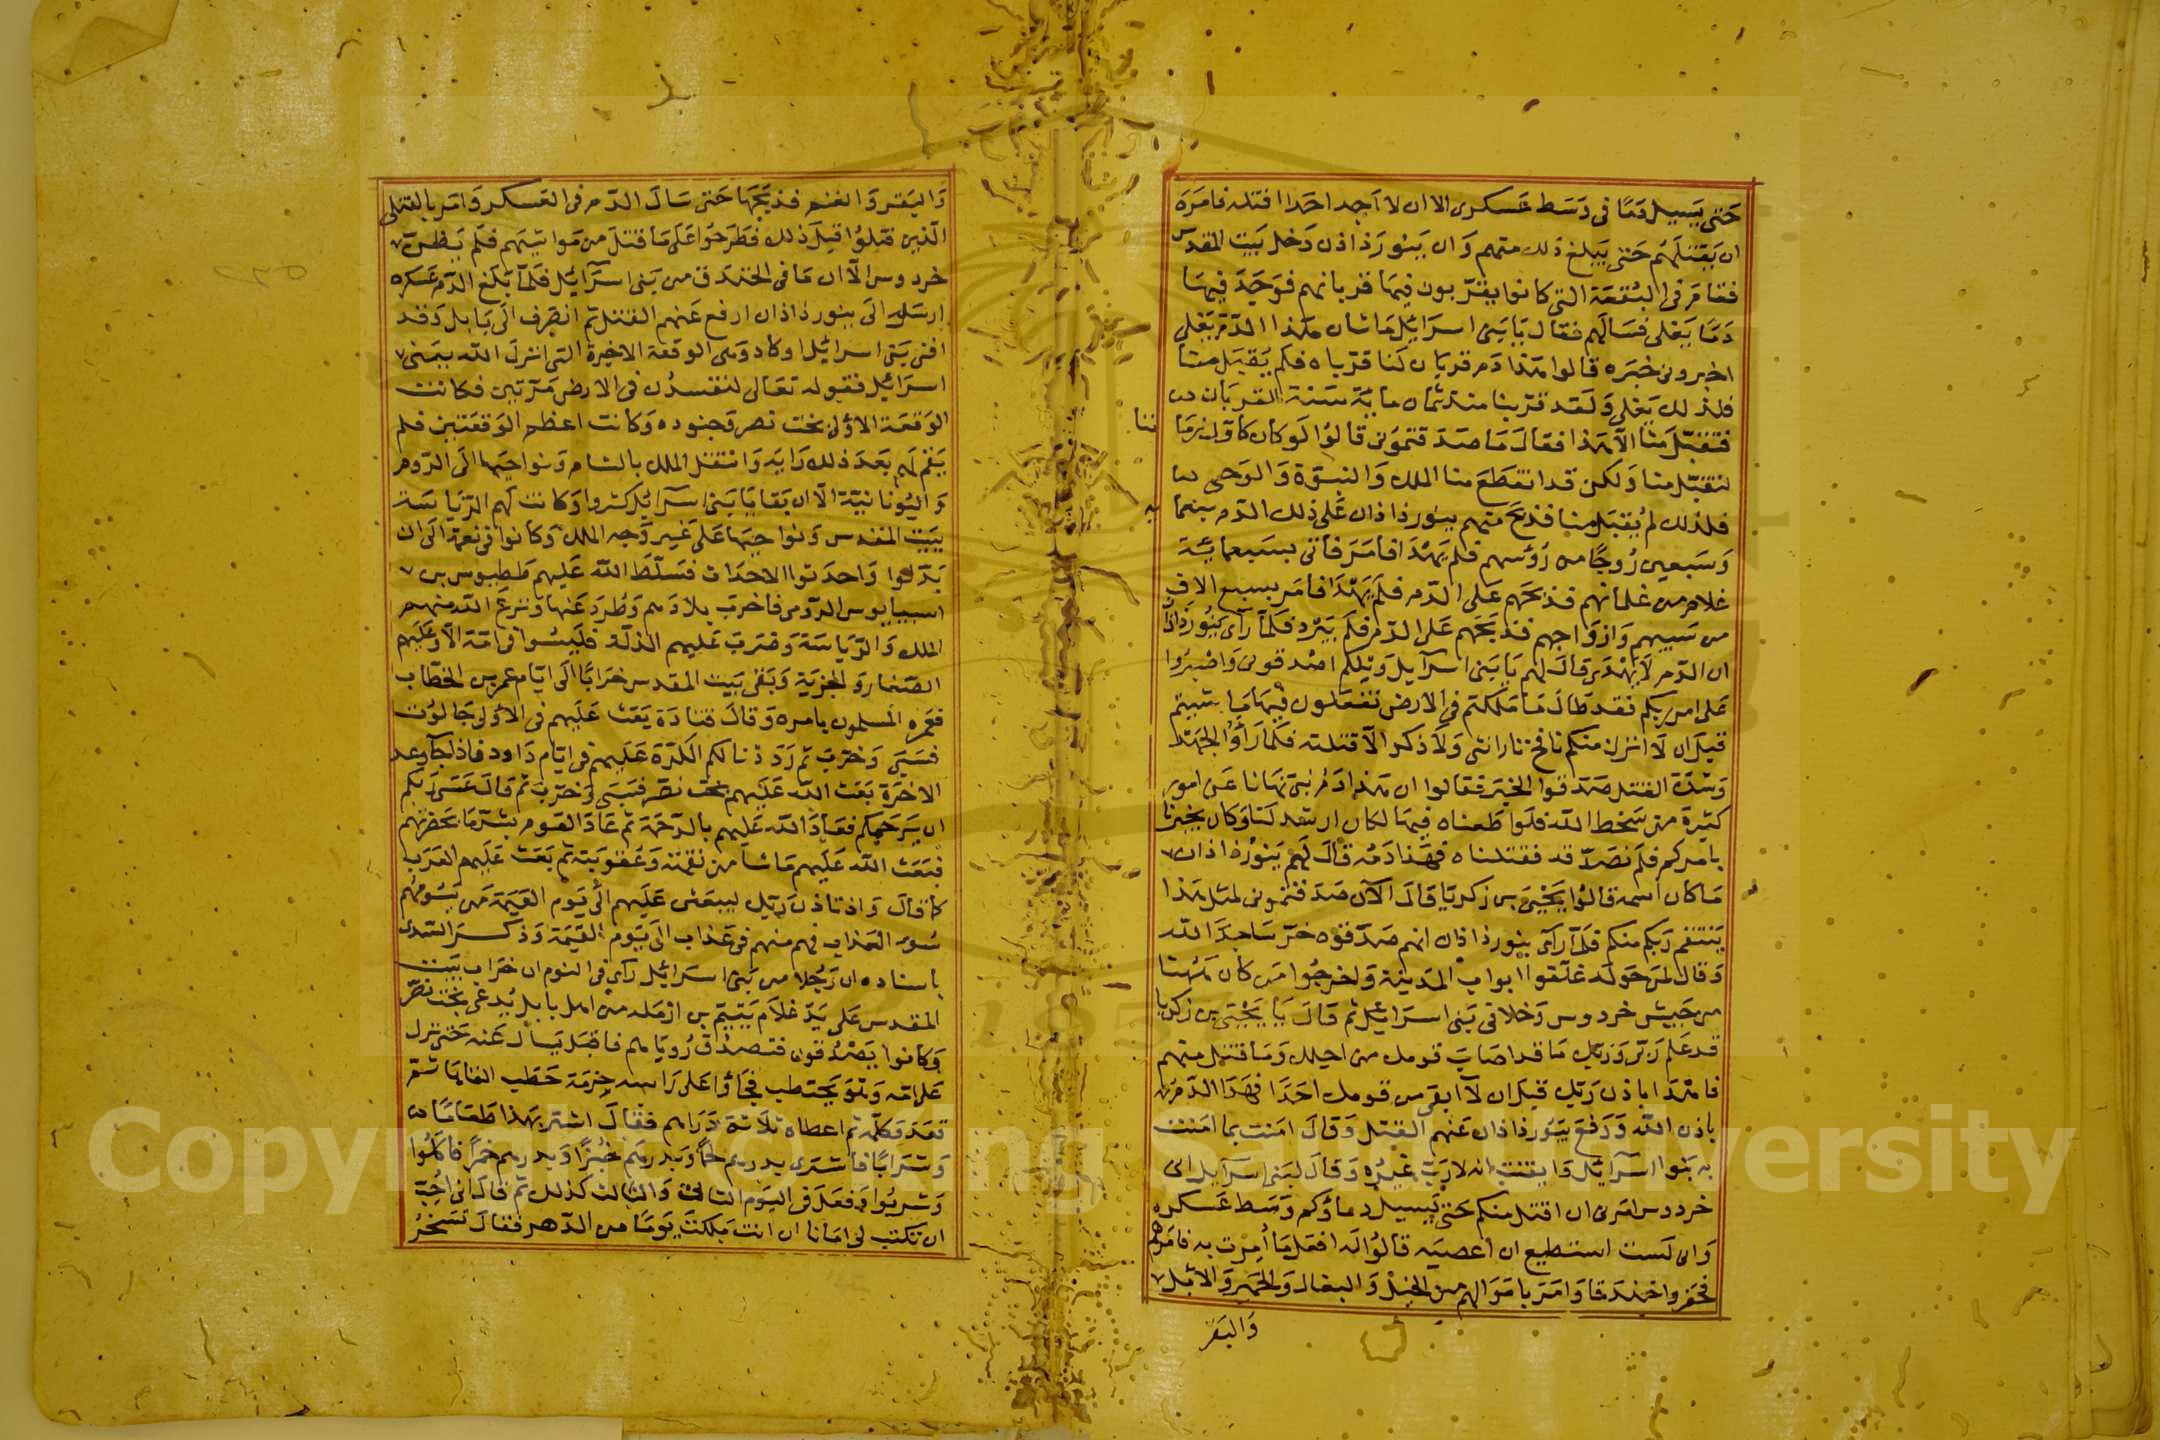 حتى يسيل دمًا في وسط عسكرى الا ان لا اجد احدا اقتله فامره
ان يقتلهم حتى يبلغ ذلك منهم وان بيورزاذان دخل بيت المقدس
فقام في البقعة التي كانوا يقربون فيها قربانهم فوجد فيها
دما يغلى فسالهم فقال يا بنى اسرائيل ما شان هذا الدم يغلى
اخبرونى خبره قالوا هذا دم قربان لنا قربناه فلم يقبل منا
فلذلك يغلى ولقد قربنا منذ ثمان ماية سنة القربان
فتقبل منا الا هذا فقال ما صدقتمونى قالوا لو كان كاول زماننا
لتقبل منا ولكن قد انقطع منا الملك والنبوة والوحى
فلذلك لم يقبل منا فذبح منهم بيورزاذان على ذلك الدم سبعمائة
وسبعين زوجًا من رؤسهم فلم يهدا فامر فاتى بسبعمائة
غلام من غلمانهم فذبحهم على الدم فلم يهدا فامر بسبع الاف
من سبيهم وازواجهم فذبحهم على الدم فلم يبرد فلما راى بيورزاذان
ان الدم لا يهدى قال لهم يا بنى اسرآيل ويلكم اصدقونى واصبروا
على امر ربكم فقد طال ما ملكتم في الارض تفعلون فيها ما شيتم
قبل ان لا اترك منكم نافخ نار انثى ولا ذكر الا قتلته فلما راؤا الجهد
وشدة القتل صدقوا الخبر فقالوا ان هذا دم نبى نهانا عن امور
كثيرة من سخط الله فلو اطعناه فيها لكان ارشد لنا وكان يخبرنا
بامركم فلم نصدقه فقتلناه فهذا دمه قال لهم بيورزاذان
ما كان اسمه قالوا يحيى بن زكريا قال الآن صدقتمونى لمثل هذا
ينتقم ربكم منكم فلما راى بيورزاذان انهم صدقوه خر ساجدا لله
وقال لمن حوله غلقوا ابواب المدينة واخرجوا من كان ههنا
من جيش خردوس وخلا في بنى اسرائيل ثم قال يا يحيى بن زكريا
قد علم ربى وربك ما قد اصاب قومك من اجلك وما قتل منهم
فاهدا باذن ربك قبل ان لا ابقى من قومك احدا فهدا الدم
باذن الله ورفع بيورزاذان عنهم القتل وقال امنت بما امنت
به بنوا اسرآئيل وايقنت انه لا رب غيره وقال لبنى اسرآيل ان
خردوس امرنى ان اقتل منكم حتى يسيل دماؤكم وسط عسكره
وانى لست استطيع ان اعصيه قالوا له افعل ما امرت به فامرهم
فحفروا خندقا وامر باموالهم من الخيل والبغال والحمير والابل
والبقر
والبقر والغنم فذبحها حتى سال الدم في العسكر وامر بالقتلى
الذين قتلوا قبل ذلك فطرحوا على ما قتل من مواشيهم فلم يظن
خردوس الا ان ما في الخندق من بنى اسرآئيل فلما بلغ الدم عسكره
ارسل الى بيورزاذان ارفع عنهم القتل ثم انصرف الى بابل وقد
افنى بنى اسرائيل او كاد وهى الوقعة الاخيرة التى انزل الله ببنى
اسرائيل فقوله تعالى لتفسدن في الارض مرتين فكانت
الوقعة الاولى بخت نصر وجنوده وكانت اعظم الوقعتين فلم
يقم لهم بعد ذلك راية وانتقل الملك بالشام ونواحيها الى الروم
واليونانية الا ان بقايا بنى اسرآئيل كثروا وكانت لهم الرياسة
ببيت المقدس ونواحيها على غير وجه الملك وكانوا في نعمة الى ان
بدلوا واحدثوا الاحداث فسلط الله عليهم ططيوس بن
اسبيبانوس الرومى فاخرب بلادهم وطردهم عنها ونزع الله منهم
الملك والرياسة وضرب عليهم الذلة فليسوا في امة الا وعليهم
الصغار والجزية وبقى بيت المقدس خرابًا الى ايام عمر بن الخطاب
فعمره المسلمون بامره وقال قتادة بعث عليهم في الاولى جالوت
فسبى وخرب ثم رددنا لكم الكرة عليهم في ايام داود فاذا جآ وعد
الاخرة بعث الله عليهم بخت نصر فسبى وخرب ثم قال عسى ربكم
ان يرحمكم فعاد الله عليهم بالرحمة ثم عاد القوم بشر ما بحضرتهم
فبعث الله عليهم ما شا من نقمته وعقوبته ثم بعث عليهم العرب
كما قال واذ تاذن ربك ليبعثن عليهم الى يوم القيمة من يسومهم
سوء العذاب فهم منهم في عذاب الى يوم القيمة وذكر السدى
باسناده ان رجلا من بنى اسرائيل راى في النوم ان خراب بيت
المقدس على يد غلام يتيم بن ارملة من اهل بابل يدعى بخت نصر
وكانوا يصدقون فتصدق رؤياهم فاقبل يسأل عنه حتى نزل
على امه وهو يحتطب فجاؤا على راسه حزمة حطب القاها ثم
قعد فكلمه ثم اعطاه ثلاثة دراهم فقال اشتر بهذا طعامًا
وشرابًا فاشترى بدرهم لحمًا وبدرهم خبزًا وبدرهم خمرًا فاكلوا
وشربوا وفعل في اليوم الثانى والثالث كذلك ثم قال انى احب
ان تكتب لى امانا ان انت ملكت يوما من الدهر فقال تسخر
Copyright © King Saud University
1957